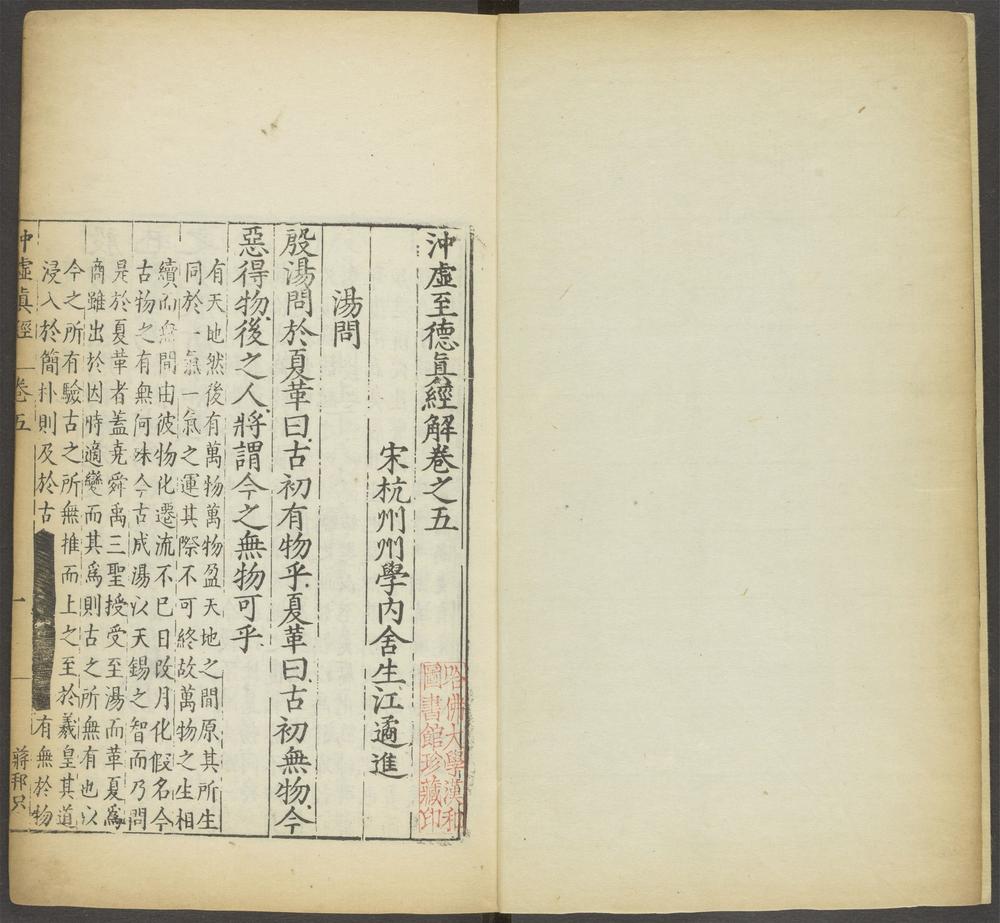 沖虛至德眞經解卷之五
宋杭州州學內舍生江遹進
湯問
殷湯問於夏革曰古初有物乎夏革曰古初無物今
惡得物後之人將謂今之無物可乎
有天地然後有萬物萬物盈天地之間原其所生
同於一氣一氣之運其際不可終故萬物之生相
續而無間由彼物化遷流不巳日改月化假名今
古物之有無何殊今古成湯以天錫之智而乃問
是於夏革者蓋堯舜禹三聖授受至湯而革夏爲
商雖出於因時適變而其爲則古之所無有也以
今之所有驗古之所無推而上之至於羲皇其道
浸入於簡朴則及於古
有無於物
沖虛眞經
卷五
一
蔣邦只
哈佛大學漢和
圖書館珍藏印